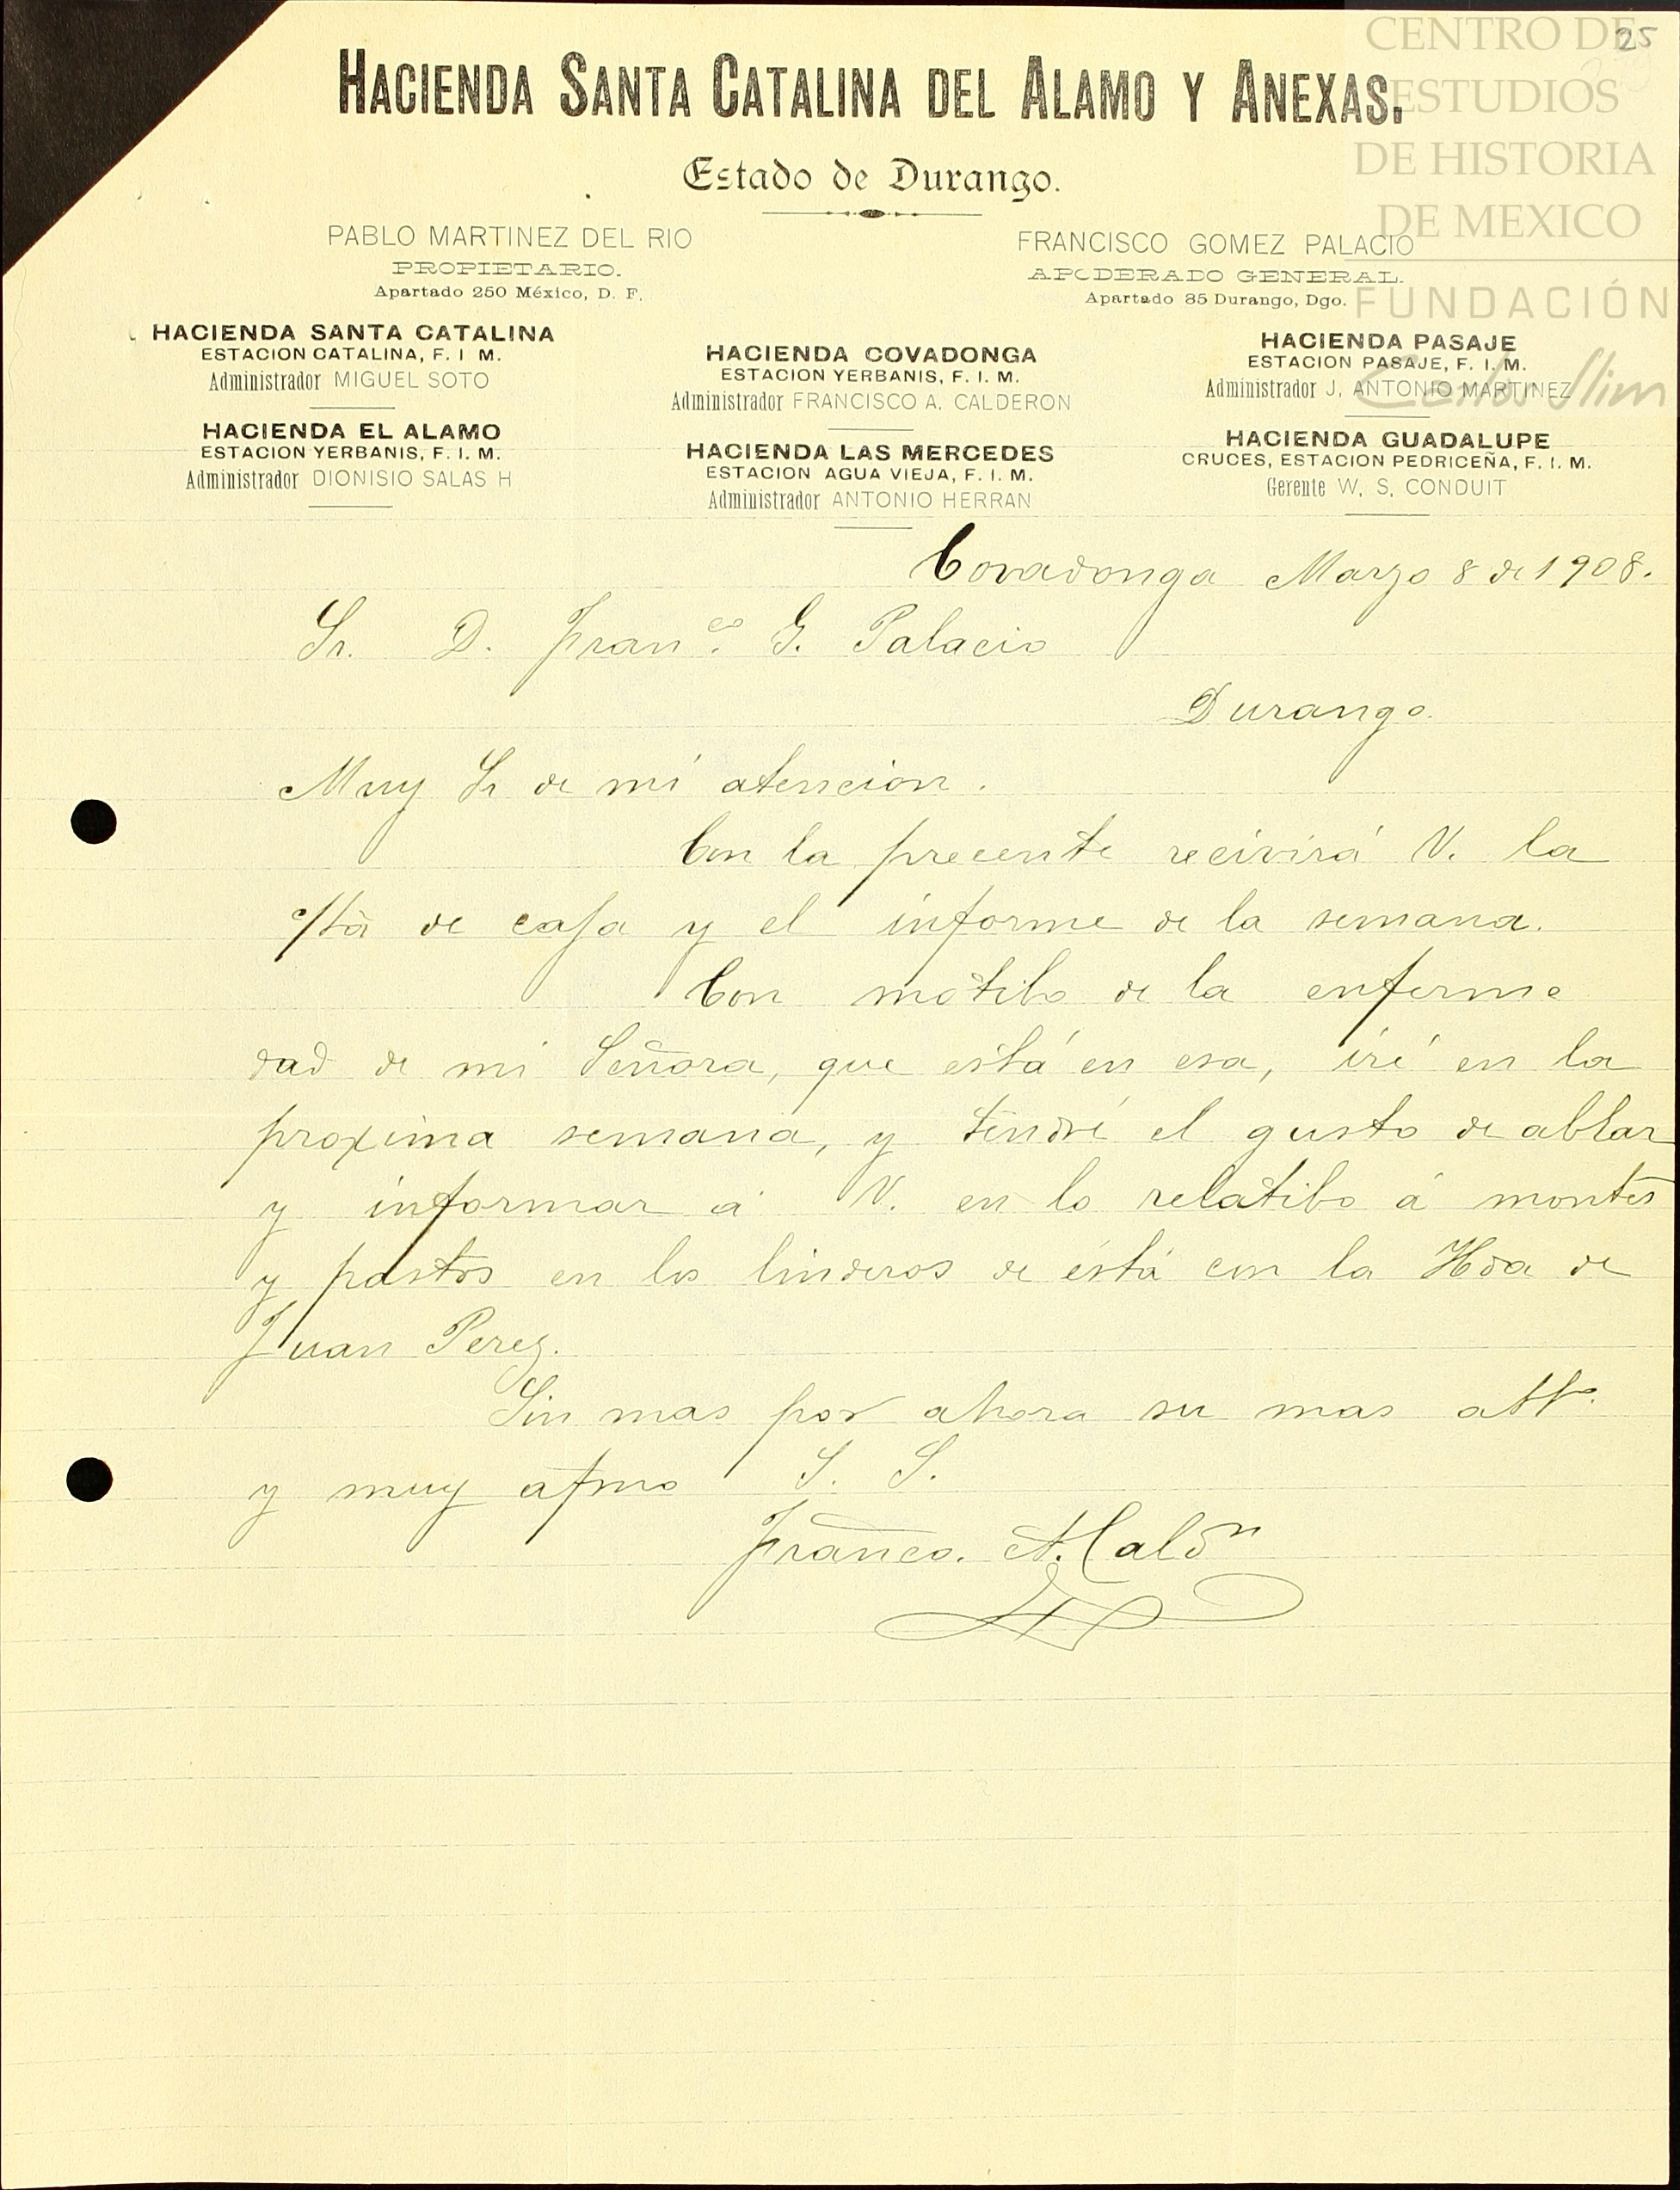 25
CENTRO DE
ESTUDIOS
DE HISTORIA
DE MEXICO
FUNDACIÓN
Carlos Slim
HACIENDA SANTA CATALINA DEL ALAMO Y ANEXAS.
Estado de Durango.
PABLO MARTINEZ DEL RIO
PROPIETARIO.
Apartado 250 México, D. F.
FRANCISCO GOMEZ PALACIO
APODERADO GENERAL.
Apartado 35 Durango, Dgo.
HACIENDA SANTA CATALINA
ESTACION CATALINA, F. I M.
Administrador MIGUEL SOTO
HACIENDA EL ALAMO
ESTACION YERBANIS, F. I. M.
Administrador DIONISIO SALAS H
HACIENDA COVADONGA
ESTACION YERBANIS, F. I. M.
Administrador FRANCISCO A. CALDERON
HACIENDA LAS MERCEDES
ESTACION AGUA VIEJA, F. I. M.
Administrador ANTONIO HERRAN
HACIENDA PASAJE
ESTACION PASAJE, F. I. M.
Administrador J. ANTONIO MARTINEZ
HACIENDA GUADALUPE
CRUCES, ESTACION PEDRICEÑA, F. I. M.
Gerente W. S. CONDUIT
Covadonga Marzo 8 de 1908.
Sr. D. Franco. G. Palacio
Durango.
Muy Sr de mi atencion.
Con la precente recivirá V. la
c/ta de caja y el informe de la semana.
Con motibo de la enferme
dad de mi Señora, que está en esa, iré en la
proxima semana, y tendré el gusto de ablar
y informar á V. en lo relatibo á montes
y pastos en los linderos de ésta con la Hda de
Juan Perez.
Sin mas por ahora su mas atto.
y muy afmo S. S.
Franco. A. Caldn